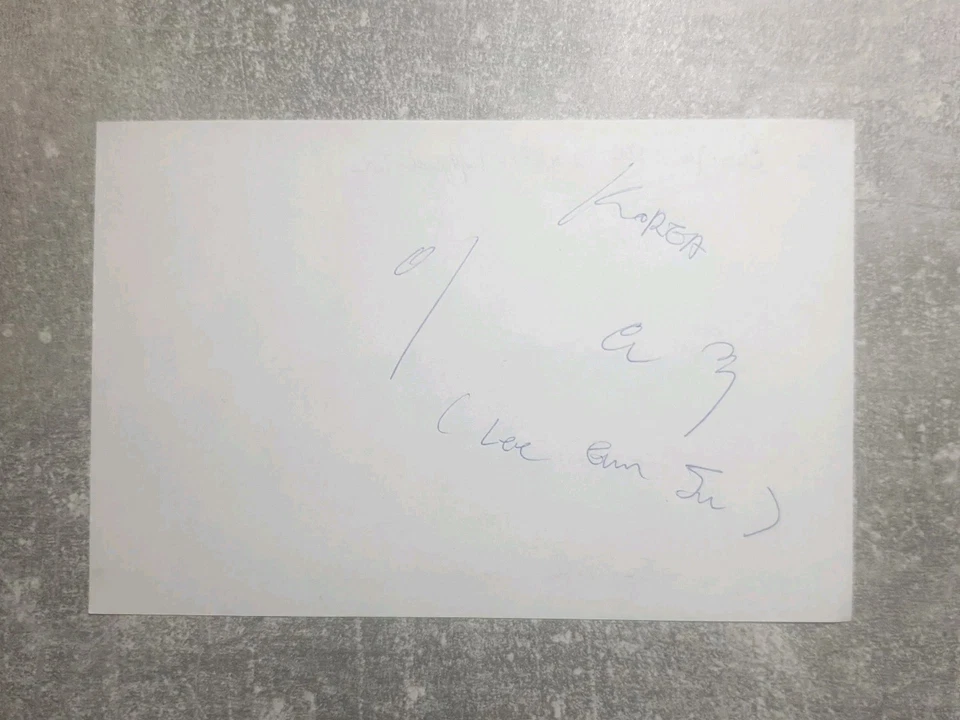 KOREA
이 은
(Lee Eun Su)